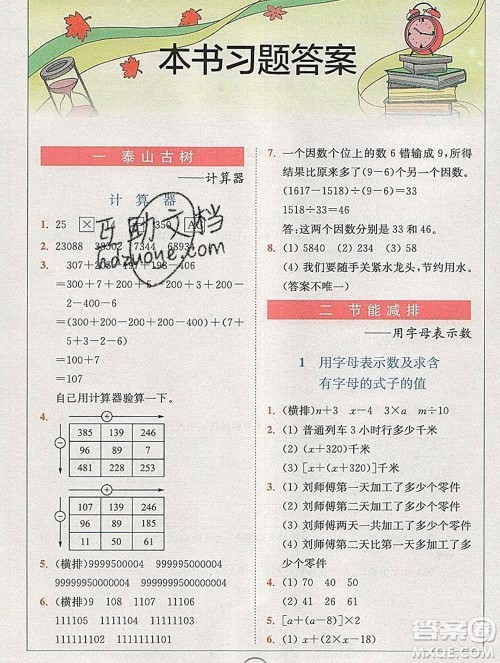 本书习题答案
一 泰山古树
——计算器
计 算 器
1. 25 × 350
2. 23088 39302 7344 68934
3. 307+205
=300+200-200+5+200+7+3+200
-2-400-6
=(300+200-200+200-400)+(7+
5+3-2-6)
=100+7
=107
自己用计算器验算一下。
4.
385 139 246
96 89 7
481 228 253
107 96 111
96 85 50
11 50 61
5. (横排)9999500004 999995000004
99999950000004 9999999500000004
6. (横排)9 108 1107 11106 111105
1111104 11111103 111111102
7. 一个因数个位上的数 6 错输成 9,所得
结果比原来多了(9-6)个另一个因数。
(1617-1518)÷(9-6)=33
1518÷33=46
答,这两个因数分别是 46 和 33。
8. (1) 5840 (2) 234 (3) 58
(4) 我们要随手关紧水龙头,节约用水。
(答案不唯一)
二 节能减排
——用字母表示数
1 用字母表示数及求含
有字母的式子的值
1. (横排)n+3 x-4 3×a m÷10
2. (1) 普通列车 3 小时行了多少千米
(2) (x+320)千米
(3) [x+(x+320)]千米
3. (1) 刘师傅第一天加工了多少个零件
(2) 刘师傅第二天加工了多少个零件
(3) 刘师傅两天一共加工了多少个零件
(4) 刘师傅第二天比第一天多加工了
多少个零件
4. (1) 70 40 50
(2) 41 26 61
5. [a+(a-8)]×2
6. (1) x+(2×x-18)
互助文档
hdzuoye.com
作业帮
MXQE.COM